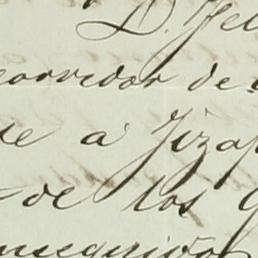 D. Fel
corredor de
se a Tizap
de los
nseguidos